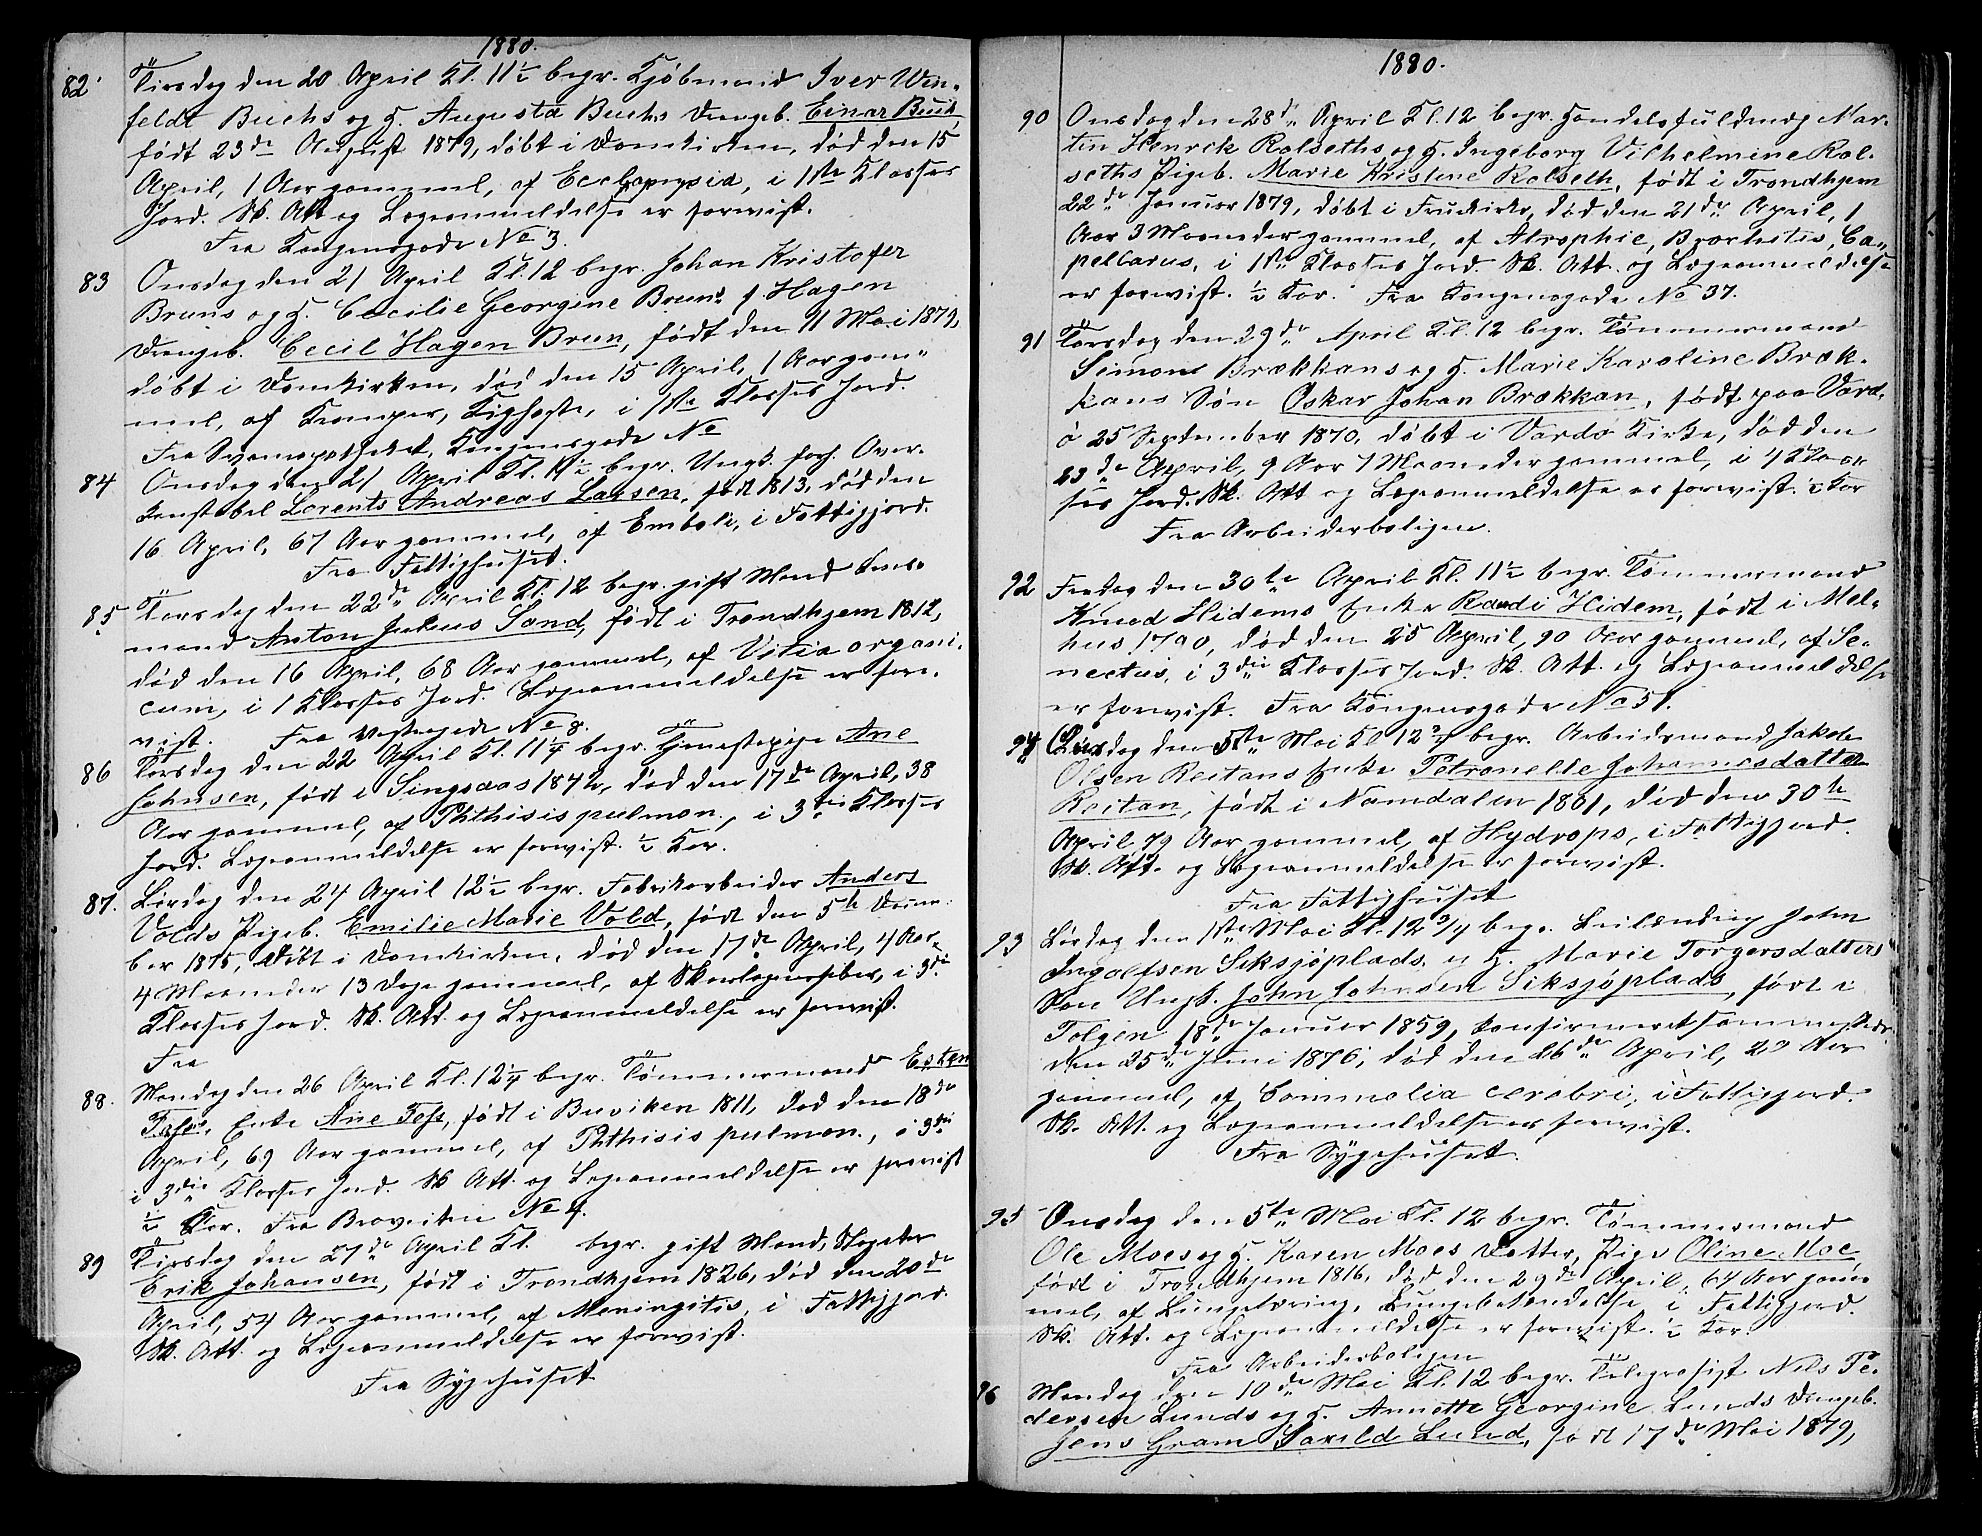 1880.
82. Tirsdag den 20 April Kl. 11½ begr. Kjöbmand Iver Win-
feldt Buchs og H. Augusta Buchs Drengeb. Einar Buch
født 23de August 1879, døbt i Domkirken, død den 15
April, 1 Aar gammel, af Ecclapmpsia, i 1ste Klasses
Jord. Sk. Att og Lægeanmeldelse er forevist.
Fra Kongensgade No 3.
83 Onsdag den 21 April Kl. 12 begr. Johan Kristofer
Bruns og H. Cecilie Georgine Bruns f Hagen
Drengeb. Cecil Hagen Brun, født den 11 Mai 1879,
døbt i Domkirken, død den 15 April, 1 Aar gam-
mel, af Kramper, Kighoste, i 1ste Klasses Jord.
Fra Svaneapotheket, Kongensgade No
84 Onsdag den 21 April Kl. 11½ begr. Ungk. forh. Over-
konstabel Lorents Andreas Larsen, født 1813, død den
16 April, 67 Aar gammel, af Emboli, i Fattigjord.
Fra Fattighuset.
85 Torsdag den 22de April Kl. 12 begr. gift Mand
mand Anton Julius Sand, født i Trondhjem 1812,
død den 16 April, 68 Aar gammel, af Vitia organi-
cum, i 1 Klasses Jord. Lægeanmeldelse er fore-
vist. Fra Vestregade No 8.
86 Torsdag den 22 April Kl. 11¼ begr. Tjenestepige Ane
Johnsen, født i Singsaas 1842, død den 17de April, 38
Aar gammel, af Phthisis pulmon., i 3die Klasses
Jord. Lægeanmeldelse er forevist. ½ Kor.
87. Lørdag den 24 April 12½ begr. Fabrikarbeider Anders
Volds Pigeb. Emilie Marie Vold, født den 5te Decem-
ber 1875, døbt i Domkirken, død den 17de April, 4 Aar
4 Maaneder 13 Dage gammel, af Skarlagensfeber, i 3die
Klasses Jord. Sk. Att. og Lægeanmeldelse er forevist.
Fra
88. Mandag den 26 April Kl. 12¼ begr. Tømmermand Esten
Fess, Enke Ane Fess, født i Buviken 1811, død den 18de
April, 69 Aar gammel, af Phthisis pulmon., i 3die
i 3die Klasses Jord. Sk Att. og Lægeanmeldelse er forevist
½ Kor. Fra Braveiten No 4.
89 Tirsdag den 27de April Kl. begr. gift Mand,
Erik Johansen, født i Trondhjem 1826, død den 20de
April, 54 Aar gammel, af Meningitis, i Fattigjord.
Sk. Att. og Lægeanmeldelse er forevist.
Fra Sygehuset
1880.
90 Onsdag den 28de April Kl. 12 begr. Handelsfuldmæg Mar-
tin Henrik Rolseths og H. Ingeborg Vilhelmine Rol-
seths Pigeb. Marie Kristine Rolseth, født i Trondhjem
22de Januar 1879, døbt i Fruekirke, død den 21de April, 1
Aar 3 Maaneder gammel, af Atrophie, Bronchitis, Ca-
pellarus, i 1ste Klasses Jord. Sk. Att. og Lægeanmeldelse
er forevist. ½ Kor. Fra Kongensgade No 37.
91 Torsdag den 29de April Kl. 12 begr. Tømmermand
Simon Brækkans og H. Marie Karoline Bræk-
kans Søn Oskar Johan Brækkan, født paa Vard-
ø 25 September 1870, døbt i Vardø Kirke, død den
23de April, 9 Aar 7 Maaneder gammel, i 4 Klas-
ses Jord. Sk. Att og Lægeanmeldelse er forevist. ½ Kor
Fra Arbeiderboligen.
92 Fredag den 30te April Kl. 11½ begr. Tømmermand
Knud Hidems Enke Randi Hidem, født i Mel-
hus 1790, død den 25 April, 90 Aar gammel, af Se-
nectus, i 3die Klasses Jord. Sk. Att. og Lægeanmeldelse
er forevist. Fra Kongensgade No 51.
94 dag den 5te Mai Kl 12¾ begr. Arbeidsmand Jakob
Olsen Reitans Enke Petronelle Johannesdatter
Reitan, født i Namdalen 1801, død den 30te
April 79 Aar gammel, af Hydrops, i Fattigjord.
Sk. Att. og Lægeanmeldelse er forevist.
Fra Fattighuset
93 Lørdag den 1ste Mai Kl. 12¾ begr. Leilænding John
Ingolfsen Siksjöplads og H. Marie Torgersdatters
Søn Ungk. John Johnsen Siksjöplads, født i
Tolgen 18de Januar 1859, konfirmeret sammesteds
den 25de Juni 1876, død den 26de April, 20 Aar
gammel, af Commolia cerebri, i Fattigjord.
Sk. Att. og Lægeanmeldelse er forevist.
Fra Sygehuset.
95 Onsdag den 5te Mai Kl. 12 begr. Tømmermand
Ole Moes og H. Karen Moes Datter, Pige Oline Moe
født i Trondhjem 1816, død den 29de April, 64 Aar gam-
mel, af Lungetæring, Lungebetændelse, i Fattigjord.
Sk. Att. og Lægeanmeldelse er forevist. ½ Kor.
Fra Arbeiderboligen
96 Mandag den 10de Mai Kl. 12 begr. Telegrafist Nils Pe-
dersen Lunds og H. Annette Georgine Lunds Drengeb.
Jens Gram Sarild Lund, født 17de Mai 1879,